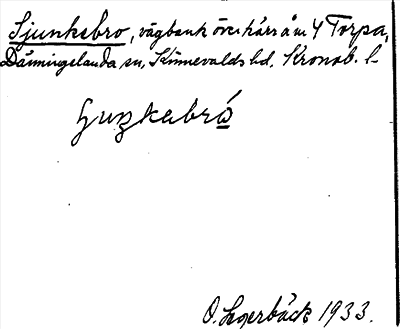 Sjunkebro, vägbank över kärr å m Y Torpa,
Dänningelanda sn, Kinnevalds hd, Kronob. l.
O. Lagerbäck 1933.